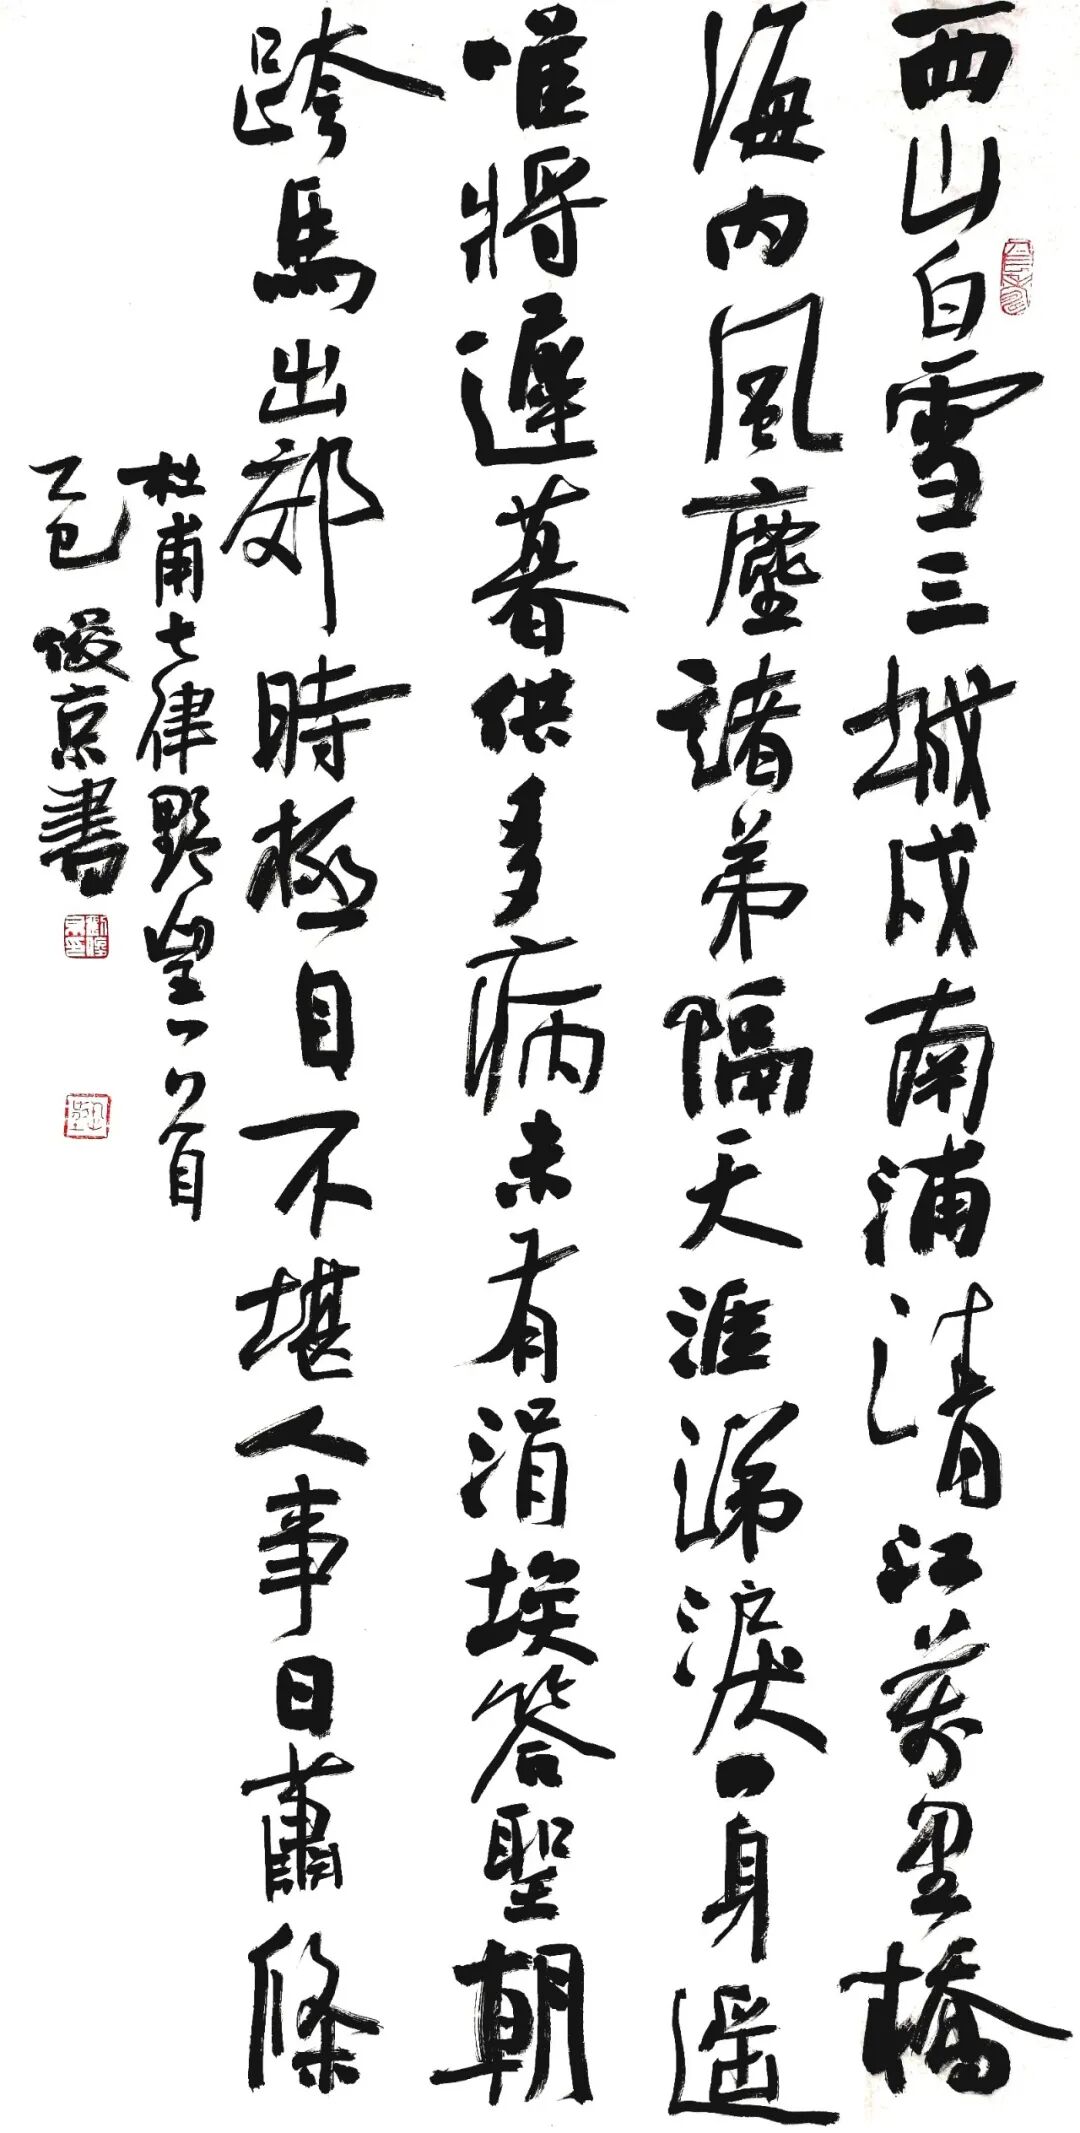 西山白雪三城戍南浦清江萬里橋
海内風塵諸弟隔天涯涕淚一身遥
唯將遲暮供多病未有涓埃答聖朝
跨馬出郊時極目不堪人事日蕭條
杜甫七律野望一首
乙巳 俊京書